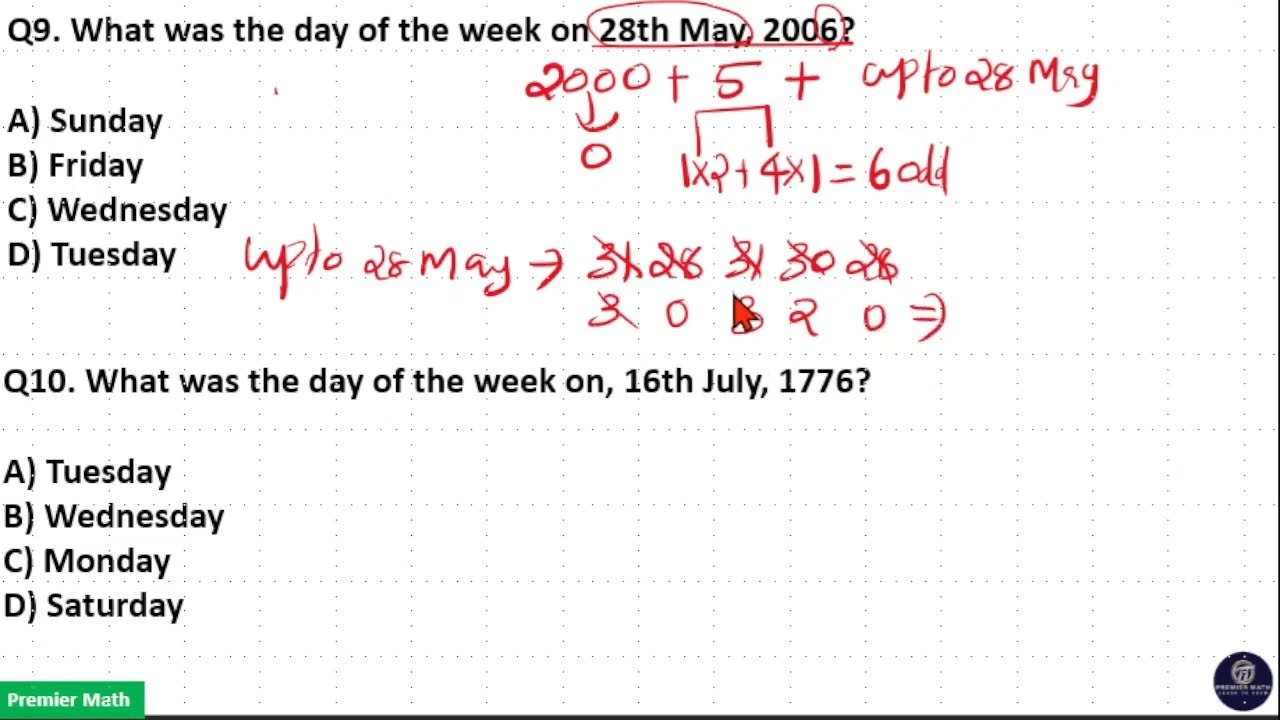 Q9. What was the day of the week on 28th May, 2006?
2000 + 5 + upto 28 May
A) Sunday
0 1x2 + 4x1 = 6 odd
B) Friday
C) Wednesday
D) Tuesday
upto 28 May → 31 28 31 30 28
3 0 3 2 0 ⇒
Q10. What was the day of the week on, 16th July, 1776?
A) Tuesday
B) Wednesday
C) Monday
D) Saturday
Premier Math
PREMIER MATH